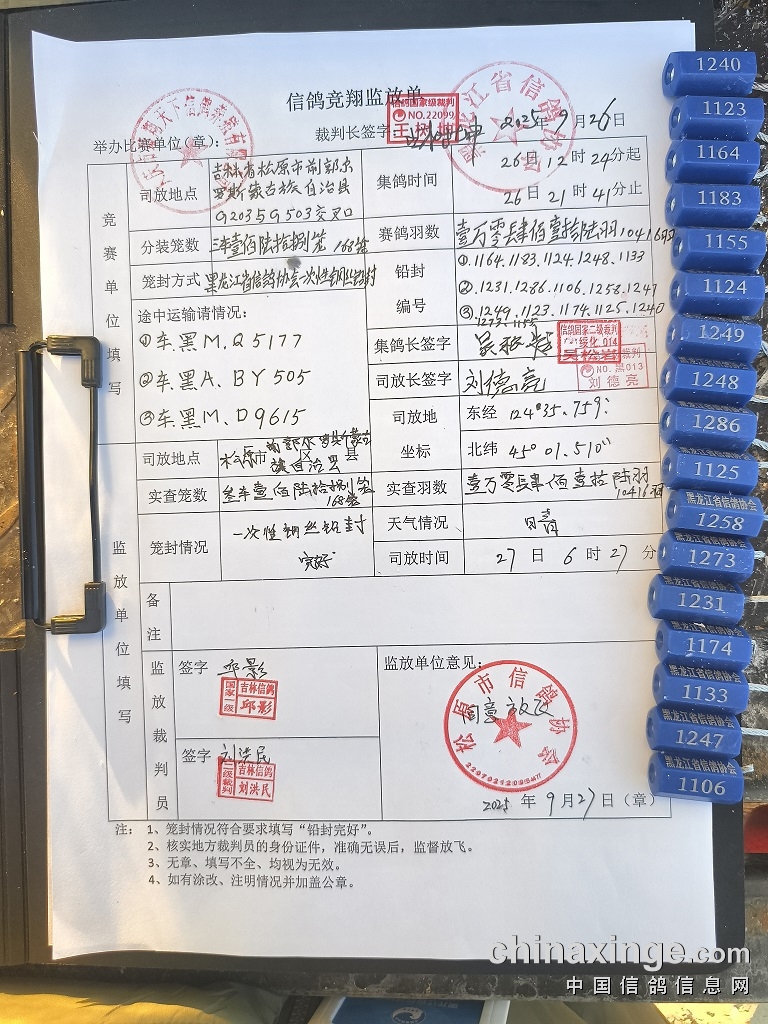 信鸽竞翔监放单
举办比赛单位(章):
裁判长签字:
信鸽国家级裁判
NO.22099
2025年9月26日
黑龙江省信鸽协会
竞赛单位填写
司放地点
吉林省松原市前郭尔
罗斯蒙古族自治县
G203与G503交叉口
集鸽时间
26日12时24分起
26日21时41分止
分装笼数
叁车壹佰陆拾捌笼 168笼
赛鸽羽数
壹万零肆佰壹拾陆羽 10416羽
笼封方式
黑龙江省信鸽协会一次性钢丝铅封
铅封
编号
①.1164.1183.1124.1248.1133
②.1231.1286.1106.1258.1247
③.1249.1123.1174.1125.1240
1273.1155
途中运输请情况:
①车黑M.Q5177
②车黑A.BY505
③车黑M.D9615
集鸽长签字
信鸽国家二级裁判
绥化 014
吴松岩
司放长签字
刘德亮
裁判
NO.黑013
刘德亮
司放地
坐标
东经 124°35.759′
北纬 45°01.510″
监放单位填写
司放地点
松原市前郭尔罗斯蒙古
族自治县
区 县
实查笼数
叁车壹佰陆拾捌笼
168笼
实查羽数
壹万零肆佰壹拾陆羽
10416羽
笼封情况
一次性钢丝铅封
完好
天气情况
晴
司放时间
27日6时27分
备注
监放裁判员
签字 邱影
国家一级
吉林信鸽
邱影
签字 刘洪民
二级裁判
吉林信鸽
刘洪民
监放单位意见:
同意放飞
松原市信鸽协会
2025年9月27日(章)
注: 1、笼封情况符合要求填写“铅封完好”。
2、核实地方裁判员的身份证件,准确无误后,监督放飞。
3、无章、填写不全、均视为无效。
4、如有涂改、注明情况并加盖公章。
1240
1123
1164
1183
1155
1124
1249
1248
1286
1125
黑龙江省信鸽协会
1258
黑龙江省信鸽协会
1273
黑龙江省信鸽协会
1231
1174
黑龙江省信鸽协会
1133
黑龙江省信鸽协会
1247
黑龙江省信鸽协会
1106
chinaxinge.com
中国信鸽信息网